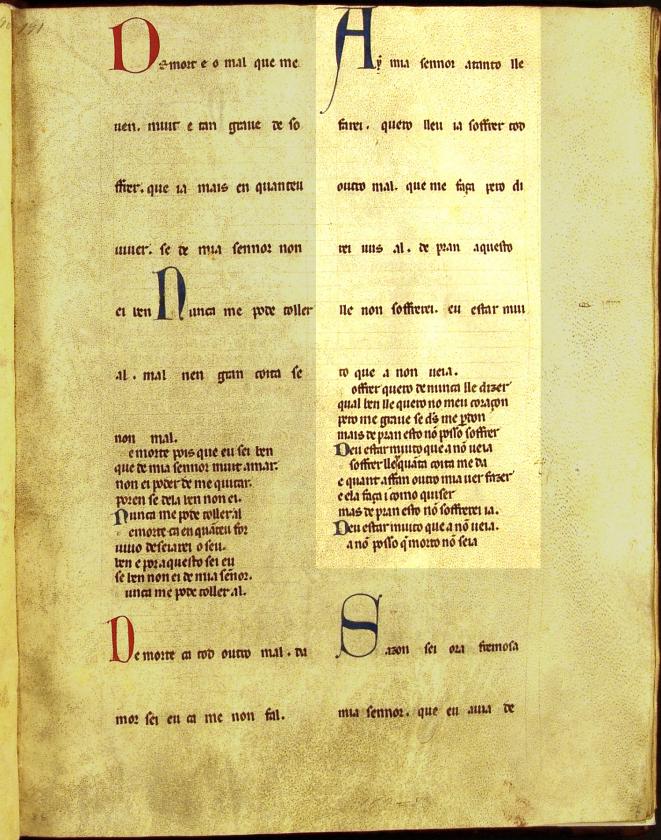 De morte e o mal que me
uen. muit e tan graue de so
ffrer. que ia mais en quanteu
uiuer. se de mia sennor non
ei ben Nunca me pode toller
al. mal nen gran coita se
non mal.
e morte pois que eu sei ben
que de mia sennor muit amar.
non ei poder de me quitar.
poren se dela ben non ei.
Nunca me pode toller al
e morte ca en quãteu for
uiuo deseiarei o seu.
ben e por aquesto sei eu
se ben non ei de mia sẽnor.
unca me pode coller al.
De morte ca tod outro mal. da
mor sei eu ca me non fal.
Aẏ mia sennor atanto lle
farei. quero lleu ia soffrer tod
outro mal. que me faça pero di
rei uus al. de pran aquesto
lle non soffrerei. eu estar mui
to que a non ueia.
offrer quero de nunca lle dizer
qual ben lle quero no meu coraçon
pero me graue se d̃s me ꝑdon
mais de pran esto nõ posso soffrer
Deu estar muito que a nõ ueia
soffrer lle quãta coita me da
e quant affan outro mia uer fazer
e ela faça i como quiser
mas de pran esto nõ soffrerei ia.
Deu estar muito que a nõ ueia.
a nõ posso q̃ morto nõ seia
Sazon sei ora fremosa
mia sennor. que eu auia de